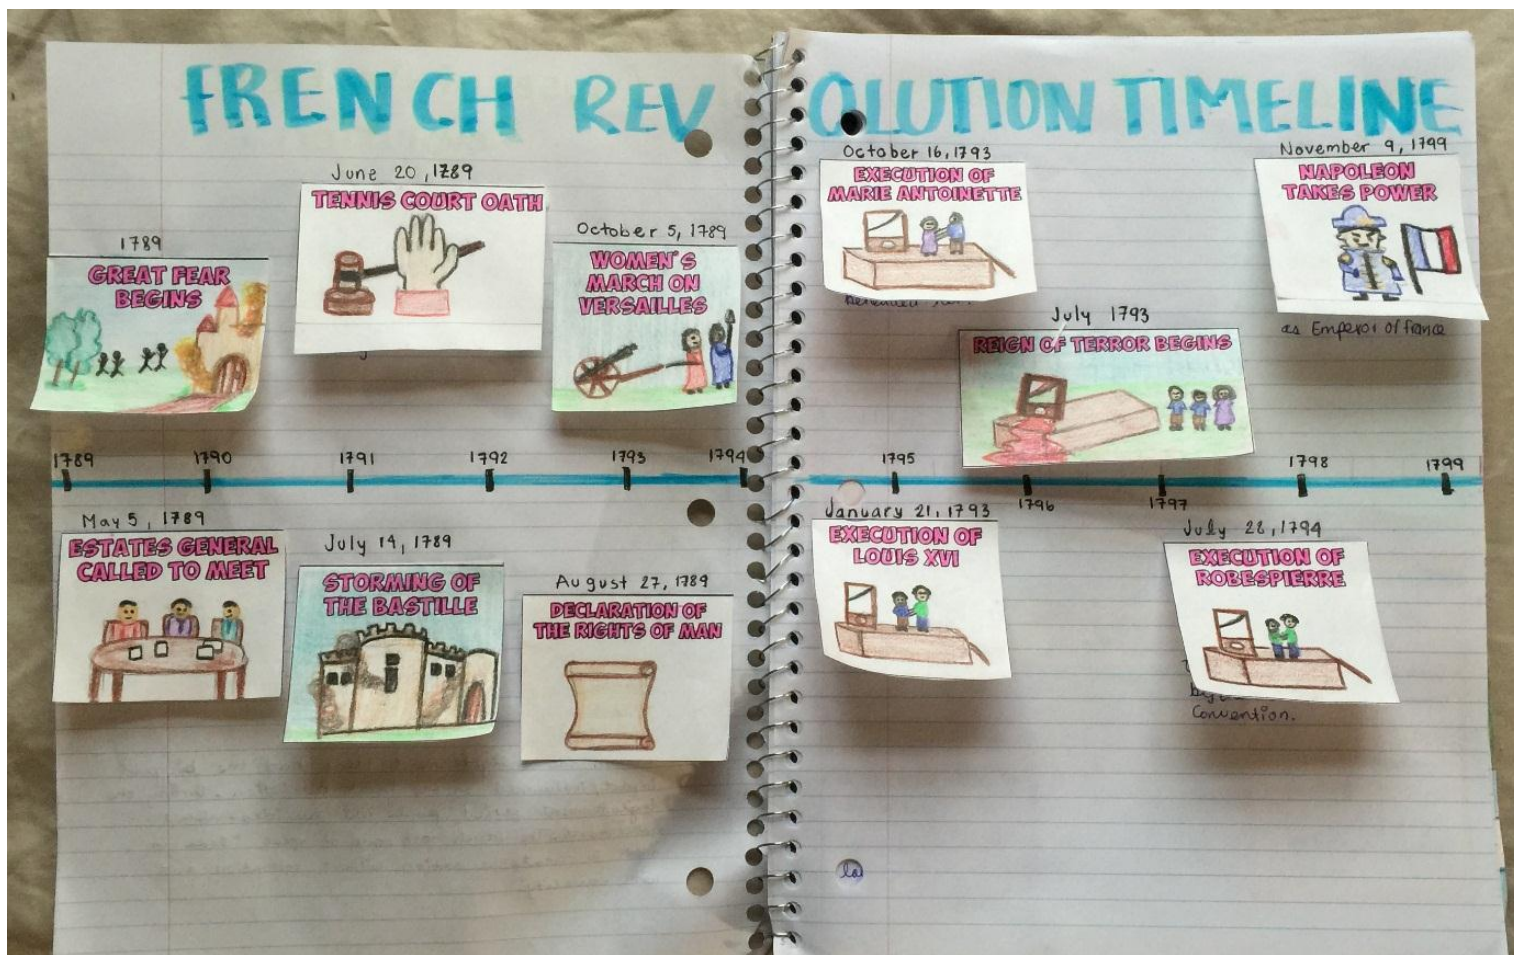 FRENCH REVOLUTION TIMELINE
1789
GREAT FEAR
BEGINS
June 20, 1789
TENNIS COURT OATH
October 5, 1789
WOMEN'S
MARCH ON
VERSAILLES
October 16, 1793
EXECUTION OF
MARIE ANTOINETTE
July 1793
REIGN OF TERROR BEGINS
November 9, 1799
NAPOLEON
TAKES POWER
as Emperor of france
1789 1790 1791 1792 1793 1794 1795 1796 1797 1798 1799
May 5, 1789
ESTATES GENERAL
CALLED TO MEET
July 14, 1789
STORMING OF
THE BASTILLE
August 27, 1789
DECLARATION OF
THE RIGHTS OF MAN
January 21, 1793
EXECUTION OF
LOUIS XVI
July 28, 1794
EXECUTION OF
ROBESPIERRE
Convention.